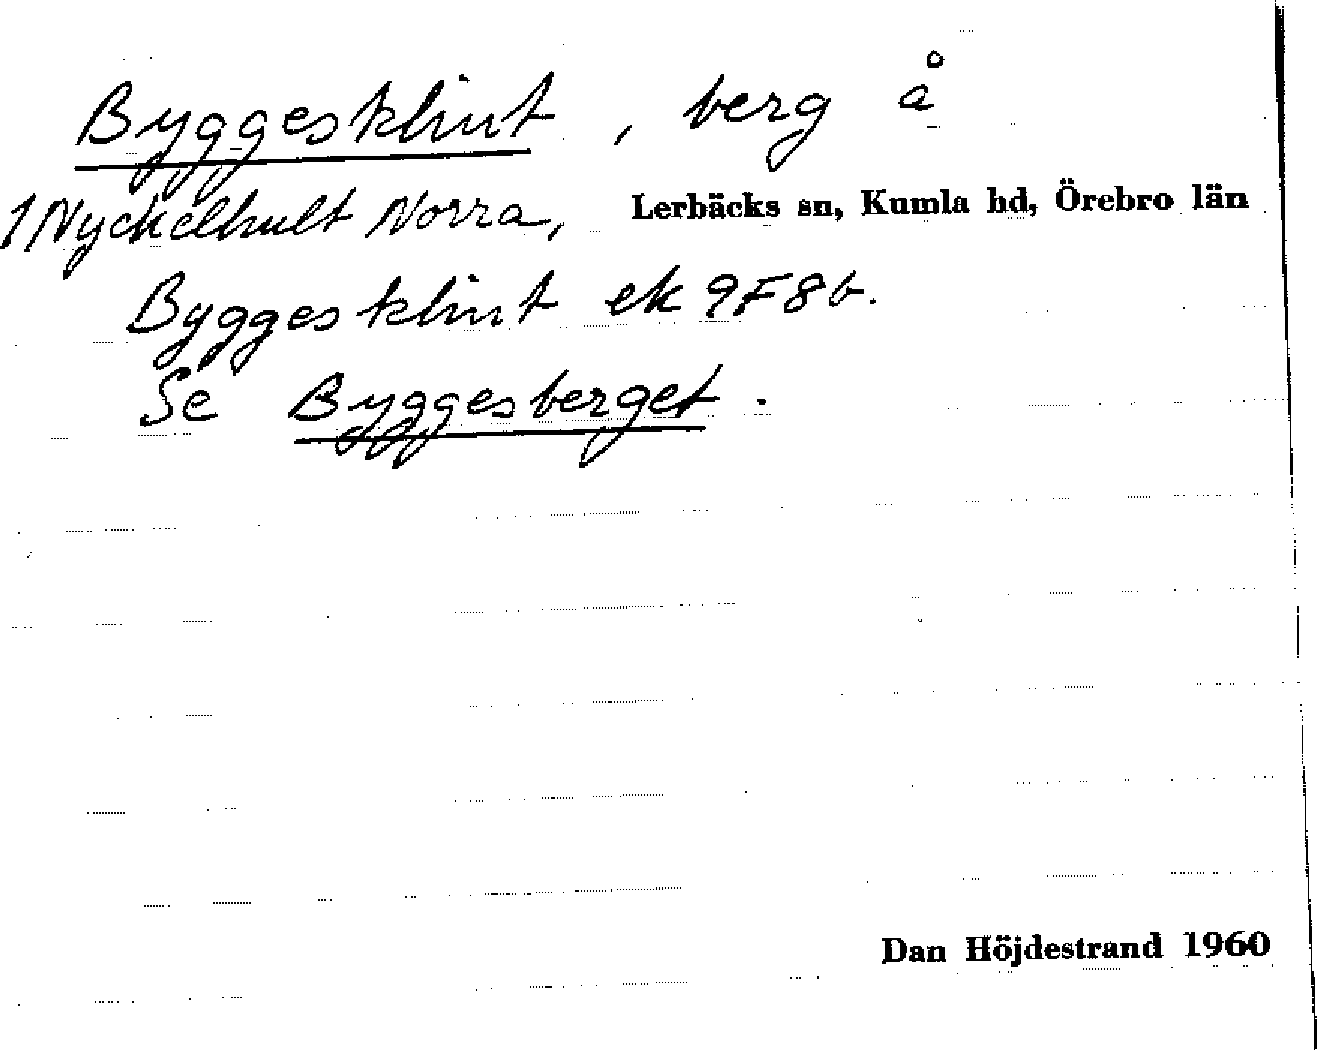 Byggesklint, berg å
1 Nyckelhult Norra, Lerbäcks sn, Kumla hd, Örebro län
Byggesklint ek 9F8b.
Se Byggesberget.
Dan Höjdestrand 1960